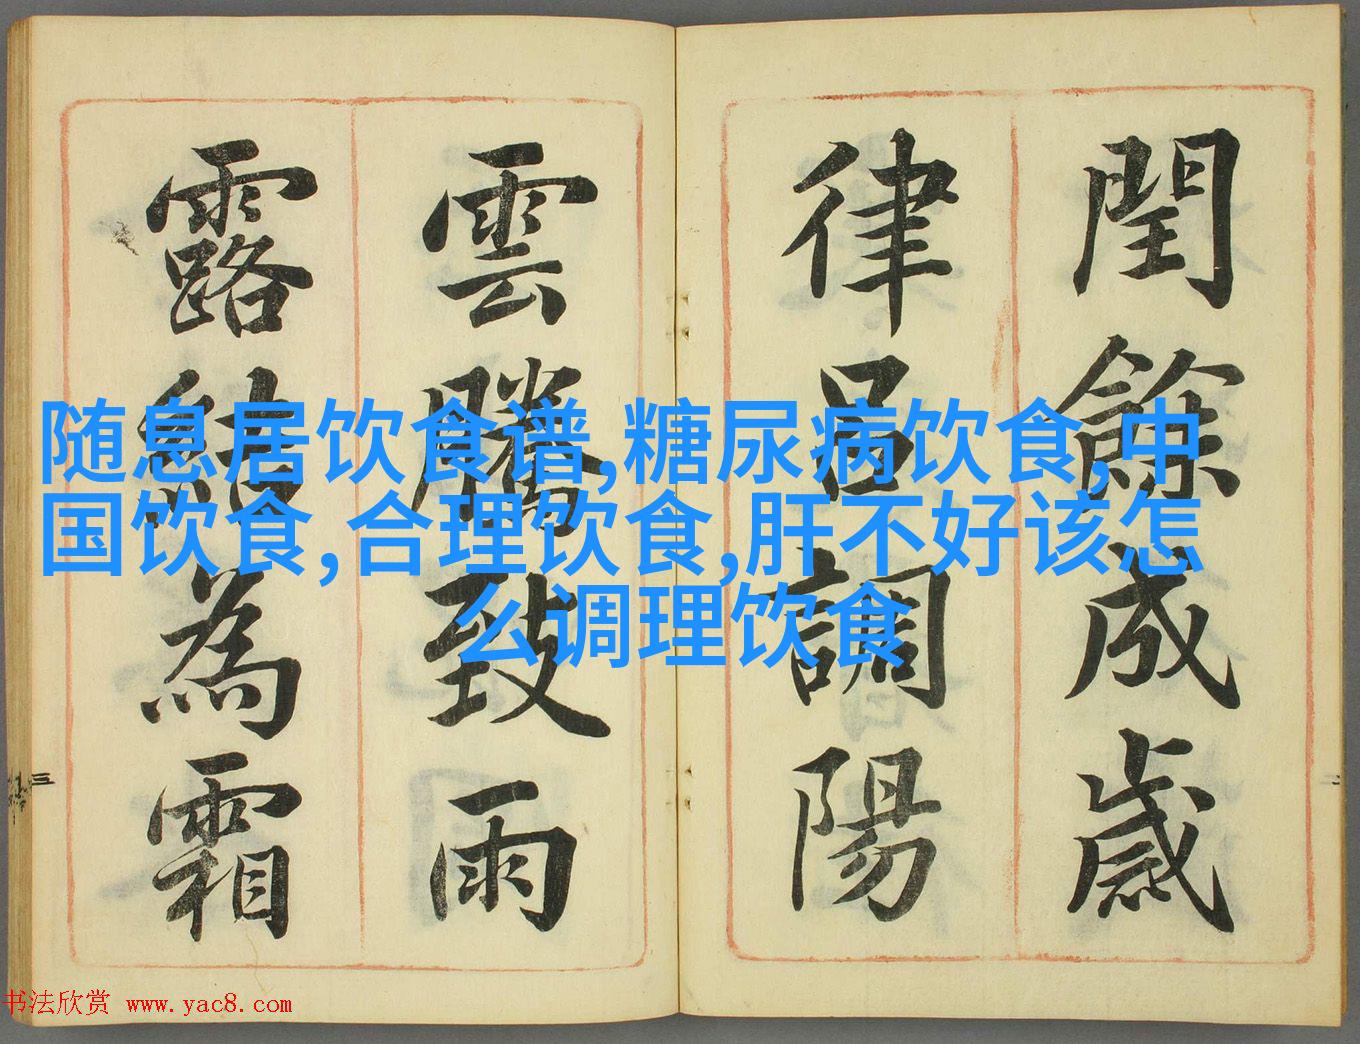 閏餘成歲
律呂調陽
雲騰致雨
露結為霜
随息居饮食谱,糖尿病饮食,中
国饮食,合理饮食,肝不好该怎
么调理饮食
三
二
书法欣赏 www.yac8.com